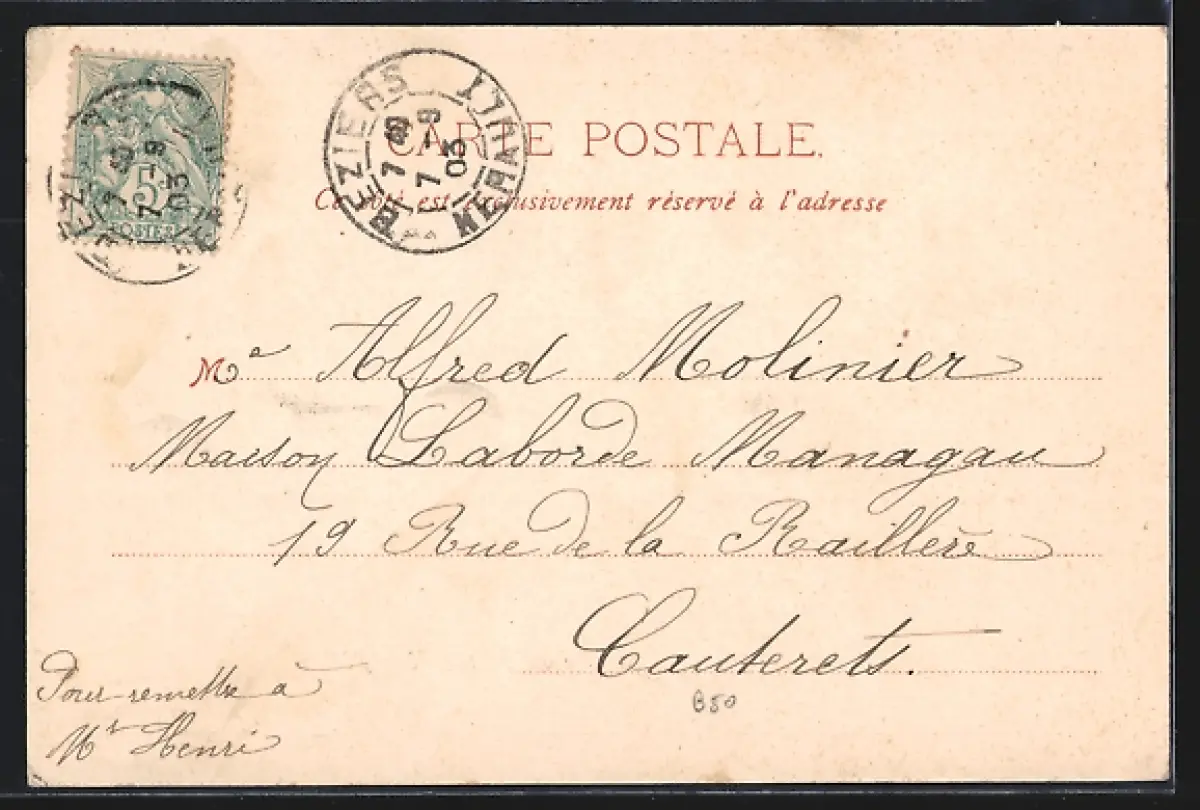 BEZIERS
HERAULT
7 40
7 -9
03
5c
POSTES
CARTE POSTALE.
Ce côté est exclusivement réservé à l'adresse
Mª Alfred Molinier
Maison Laborde Managau
19 Rue de la Raillère
Cauterets.
Pour remettre à
Mr Henri
B50